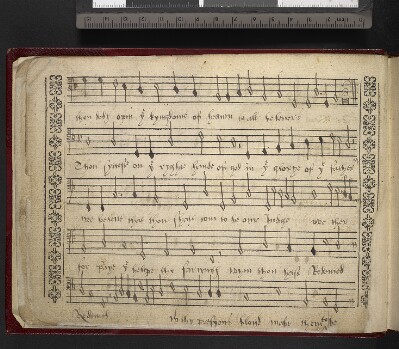 thou didst open yͤ kyngdome of heaven to all beleuers
Thou syttest on yͤ ryght hande of god in yͤ glorye of yͤ father
we beleve that thou shalt com to be our Judge we ther
for praye yͤ helpe thy servants whom thou hast Redemed
Redemed wͭ thy precyous bloud make them to be